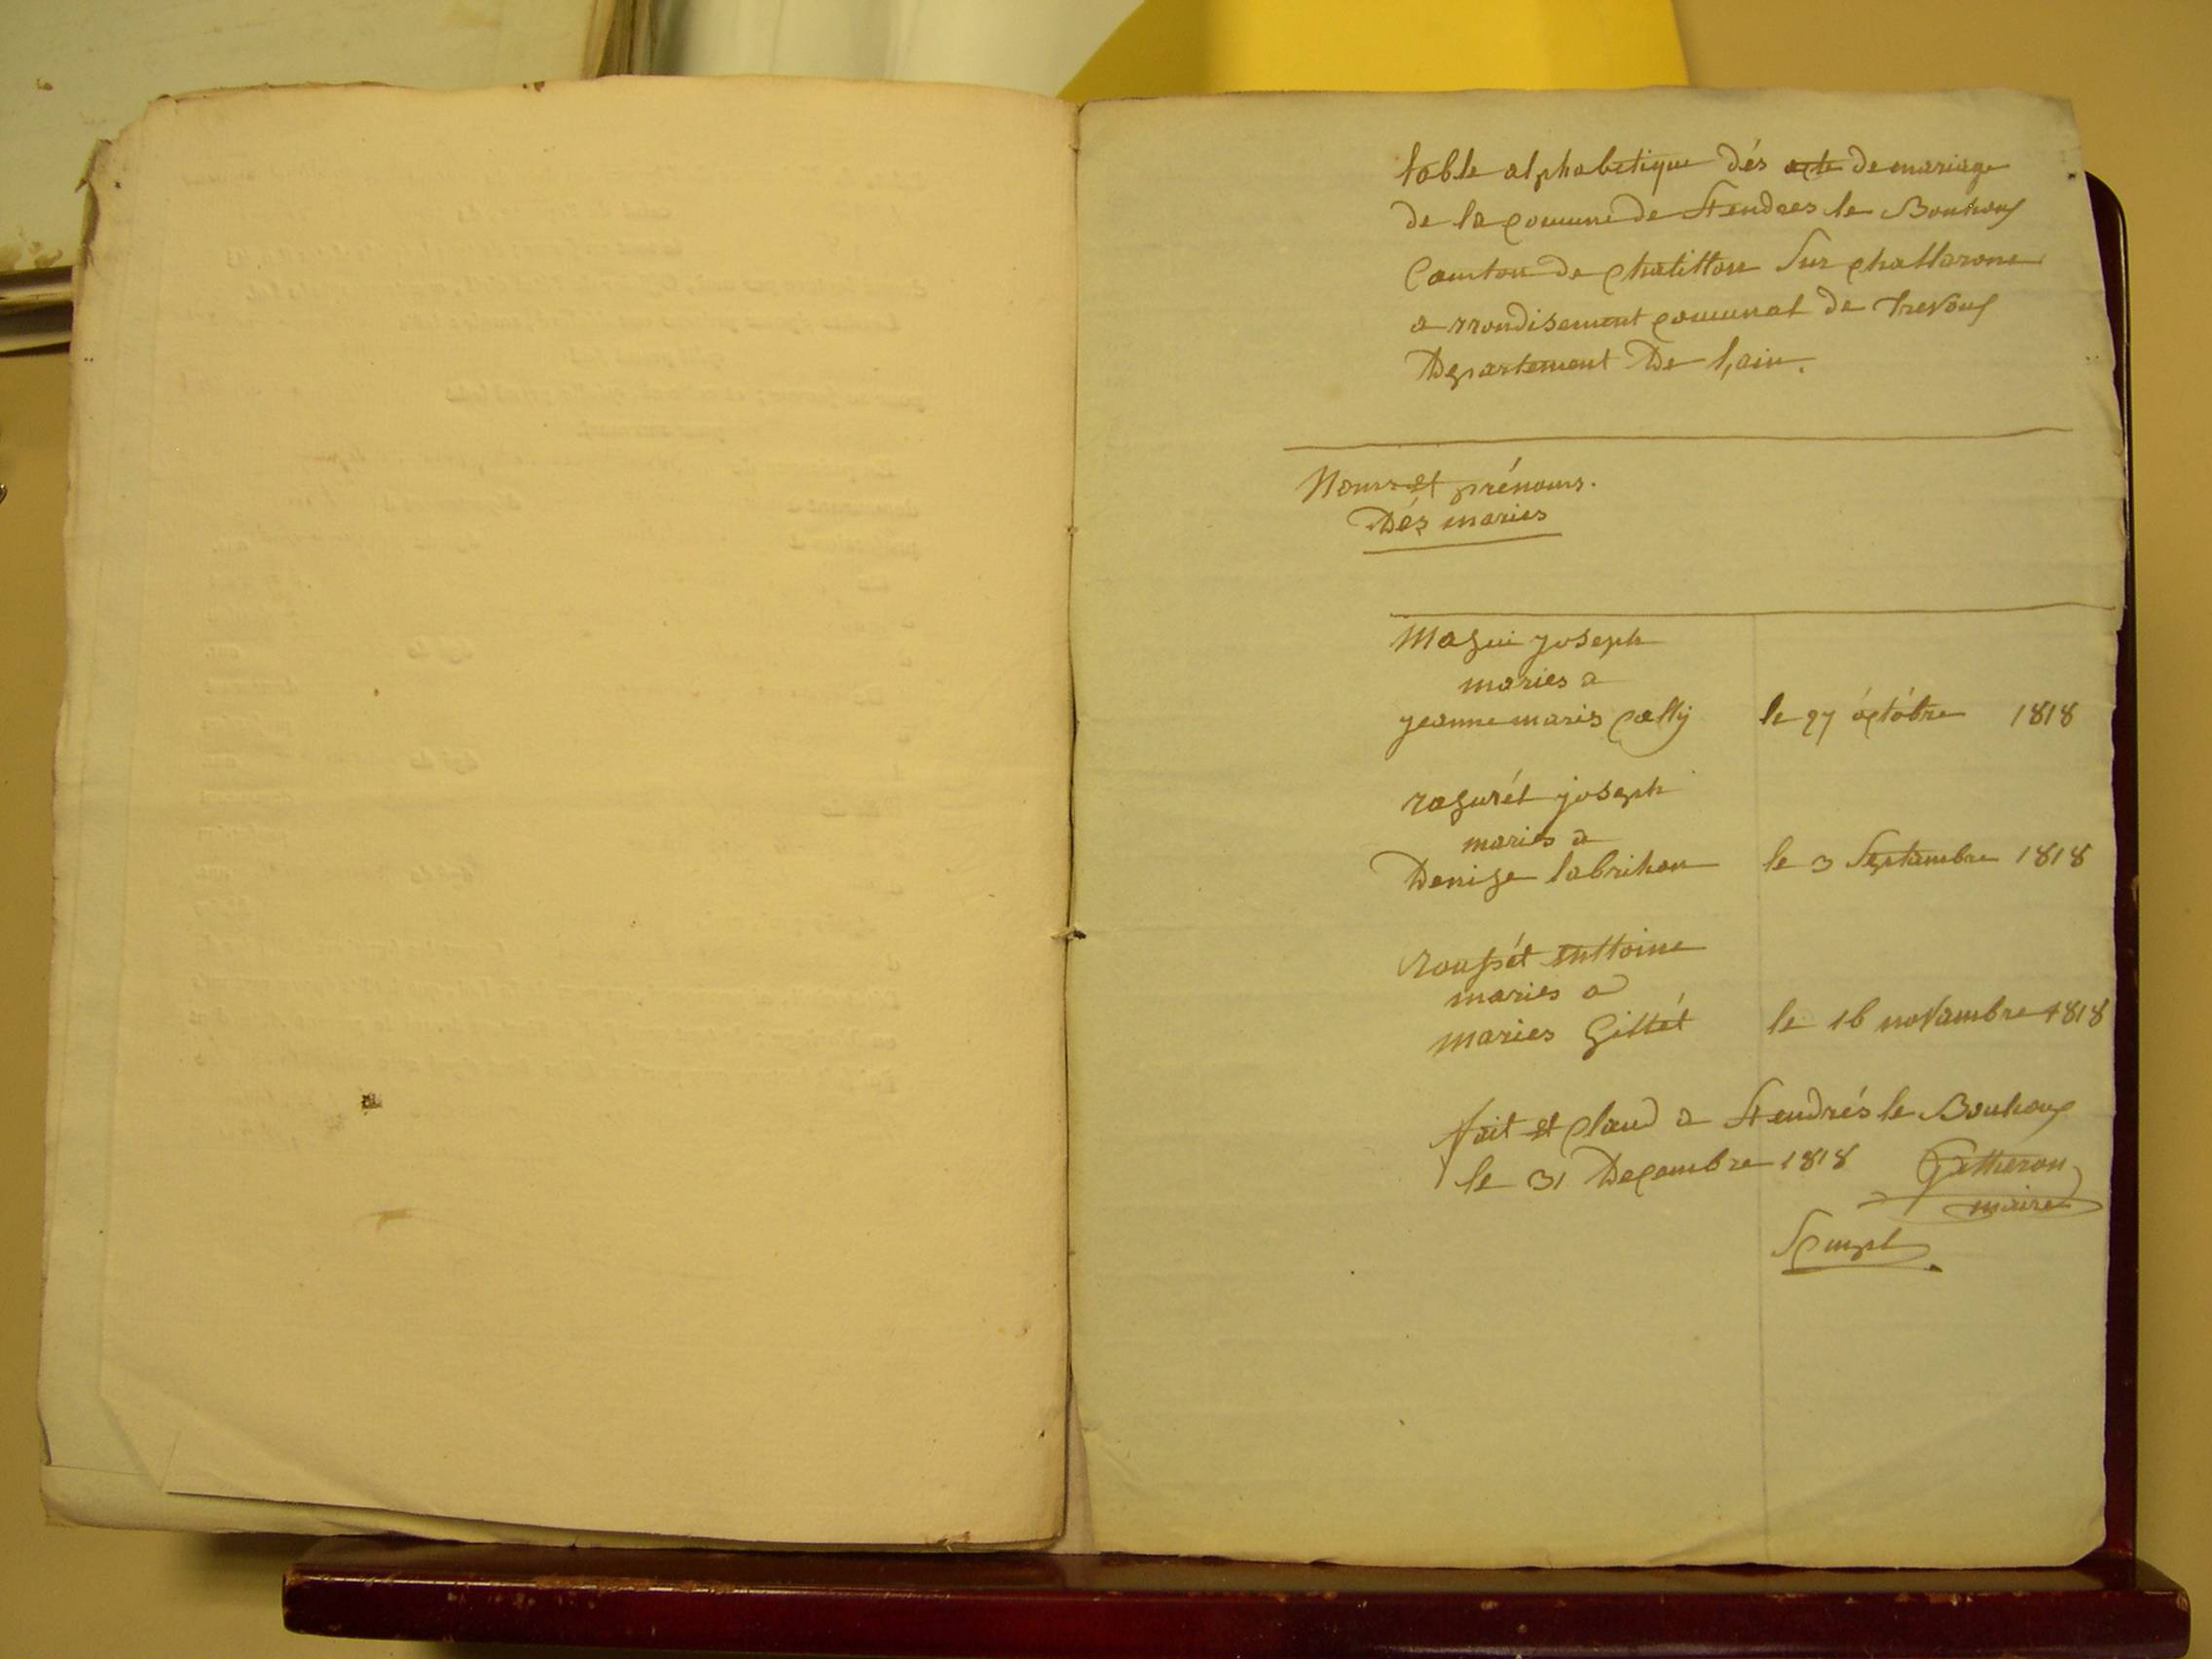 table alphabetique dés acte de mariage
de la comune de St endres le Bouhoux
Canton de chatillon Sur challarone
arrondisement comunal de trevoux
Departement De l,ain.
Noms et prénoms.
Dés maries
Magui joseph
maries a
jeanne maris le 27 óctóbre 1818
ragurét joseph
maries a
Denise labrihon le 3 Septambre 1818
roussét anttoine
maries a
maries Gillét le 16 novambre 1818
fait et Claud a St endrés le Bouhoux
le 31 Decembre 1818 Gatheron
maire